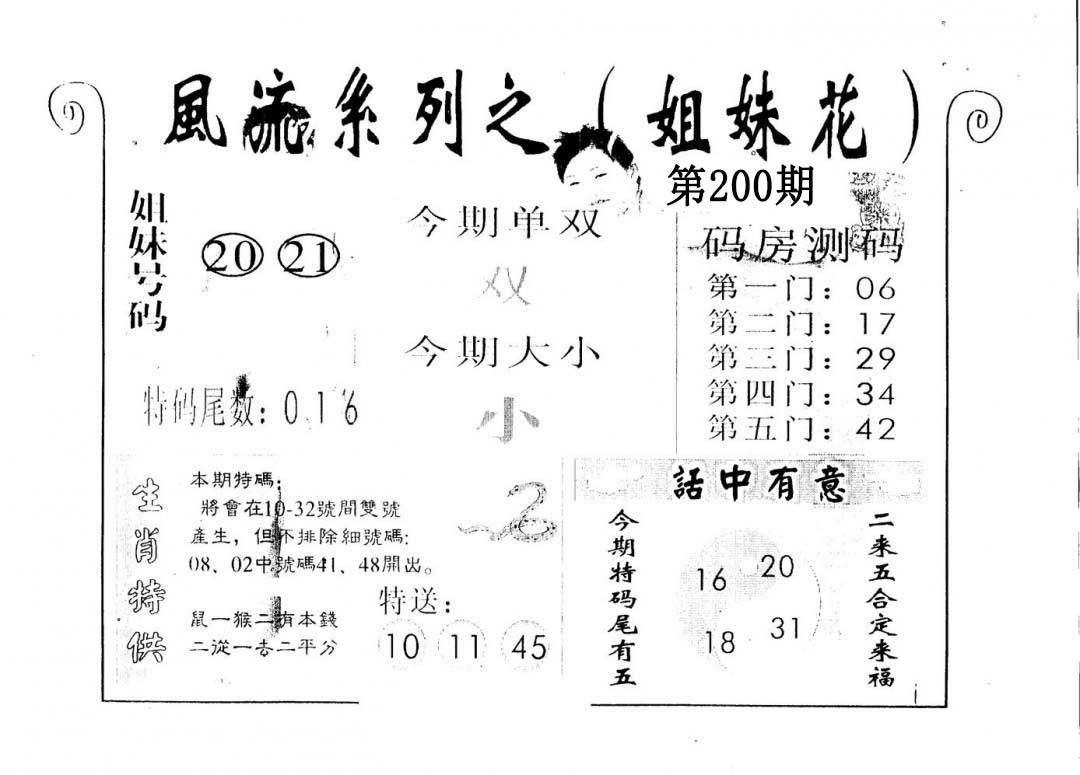 風流系列之（姐妹花）
第200期
姐妹号码
20 21
今期单双
双
今期大小
小
特码尾数：0 1 6
码房测码
第一门：06
第二门：17
第三门：29
第四门：34
第五门：42
生肖特供
本期特碼：
將會在10-32號間雙號
產生，但不排除細號碼:
08、02中號碼41、48開出。
鼠一猴二有本錢
二從一去二平分
特送：
10 11 45
話中有意
今期特码尾有五
16 20
18 31
二来五合定来福